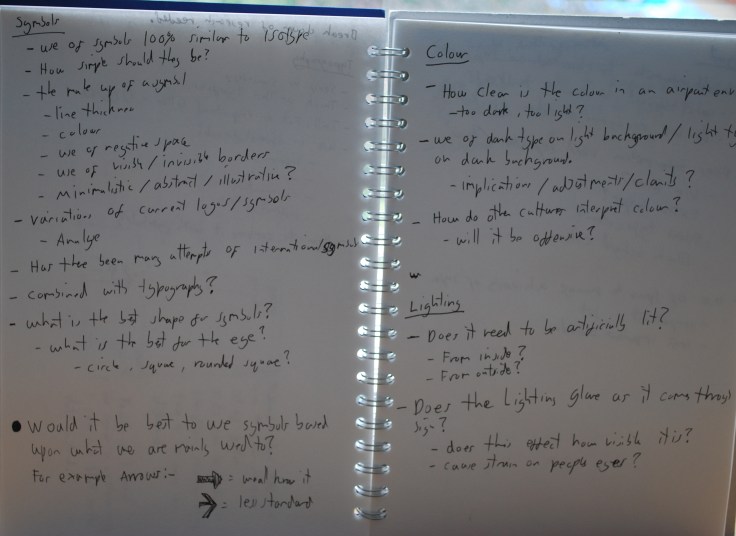 Symbols
- use of symbols 100% similar to ISOTYPE
- How simple should they be?
- the make up of a symbol
- line thickness
- colour
- use of negative space
- use of visible/invisible borders
- Minimalistic/abstract/illustrative?
- variations of current logos/symbols
- Analyse
- Has there been many attempts of international symbols
- combined with typography?
- what is the best shape for symbols?
- what is the best for the eye?
- circle, square, rounded square?
• Would it be best to use symbols based
upon what we are mainly used to?
For example Arrows:-
= usual how it
= less standard
Colour
- How clear is the colour in an airport env
- too dark, too light?
- use of dark type on light background/light ty
on dark background.
- implications/adjustments/clarity?
- How do other cultures interpret colour?
- will it be offensive?
Lighting
- Does it need to be artificially lit?
- From inside?
- From outside?
- Does the Lighting glare as it comes through
sign?
- does this effect how visible it is?
- cause strain on peoples eyes?